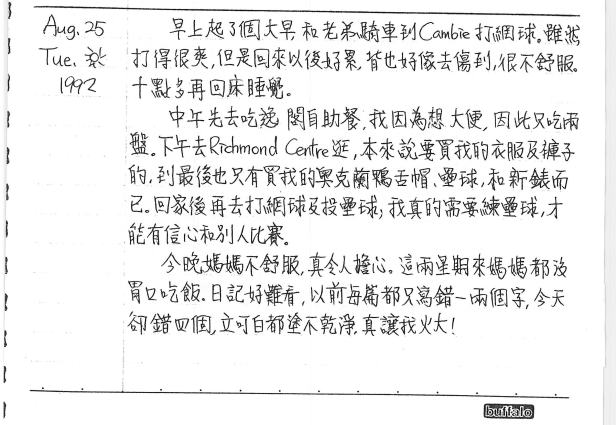 Aug. 25
Tue.
1992
早上起了個大早,和老弟騎車到Cambie打網球。雖然
打得很爽,但是回來以後好累,背也好像去傷到,很不舒服。
十點多再回床睡覺。
中午先去吃逸園自助餐,我因為想大便,因此只吃兩
盤。下午去Richmond Centre逛,本來說要買我的衣服及褲子
的,到最後也只有買我的奧克蘭鴨舌帽、壘球,和新錶而
已。回家後再去打網球及投壘球,我真的需要練壘球,才
能有信心和別人比賽。
今晚媽媽不舒服,真令人擔心。這兩星期來媽媽都沒
胃口吃飯。日記好難看,以前每篇都只寫錯一兩個字,今天
卻錯四個,立可白都塗不乾淨,真讓我火大!
buffalo